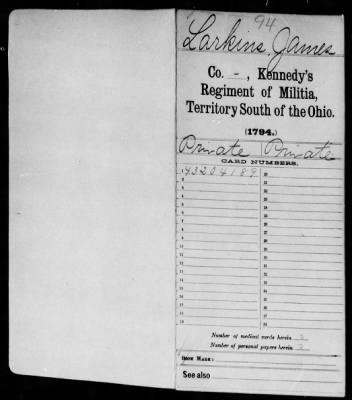 94
Larkins, James
Co. -, Kennedy's
Regiment of Militia,
Territory South of the Ohio.
(1794.)
Private | Private
CARD NUMBERS.
1 43204189
Number of medical cards herein 0
Number of personal papers herein 0
BOOK MARK:
See also